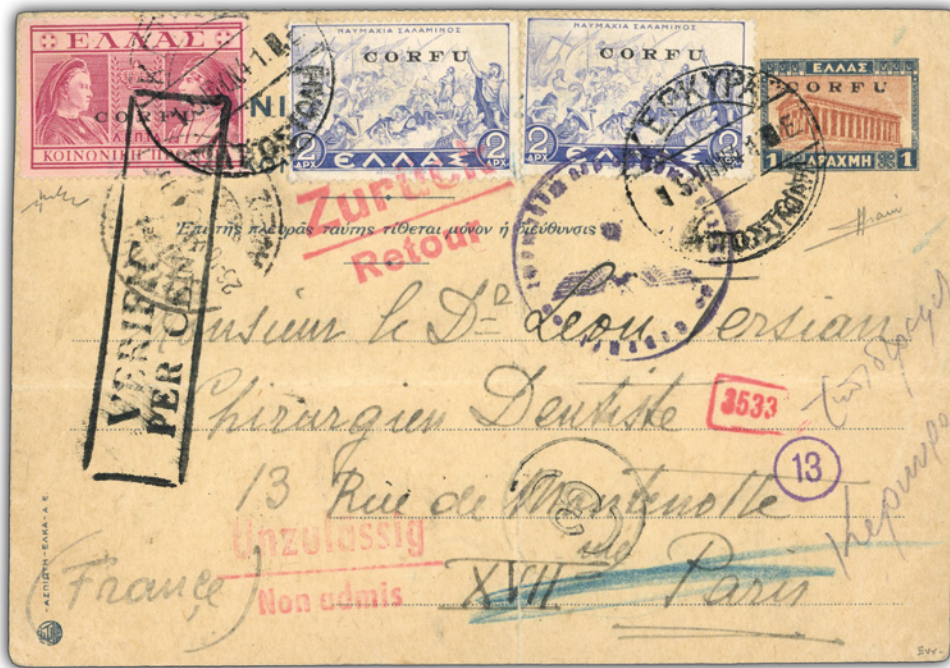 ΕΛΛΑΣ
CORFU
ΚΟΙΝΩΝΙΚΗ
ΝΑΥΜΑΧΙΑ ΣΑΛΑΜΙΝΟΣ
CORFU
2 ΔΡΧ ΕΛΛΑΣ 2 ΔΡΧ
ΝΑΥΜΑΧΙΑ ΣΑΛΑΜΙΝΟΣ
CORFU
2 ΔΡΧ ΕΛΛΑΣ 2 ΔΡΧ
ΕΛΛΑΣ
CORFU
1 ΔΡΑΧΜΗ 1
Zurück
Retour
Ἐπὶ τῆς πλευρᾶς ταύτης τίθεται μόνον ἡ διεύθυνσις
VERIFIC
PER CEN
Monsieur le Dr Leon Persian
Chirurgien Dentiste
3533
13 Rue de Montenotte
13
Unzulässig
Non admis
(France)
XVII me Paris
ΑΣΠΙΩΤΗ-ΕΛΚΑ Α.Ε.